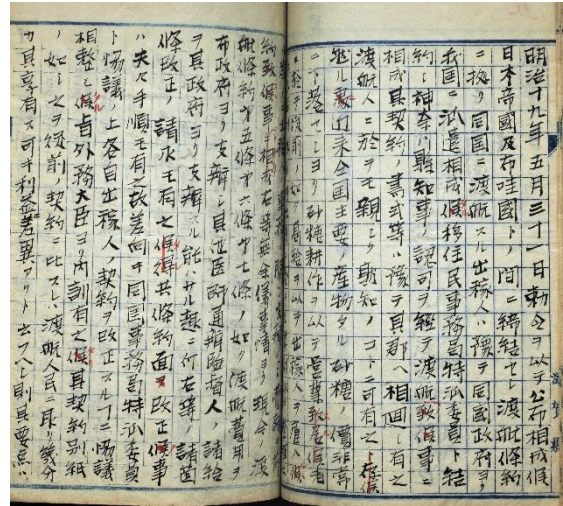 明治十九年五月三十一日勅令ヲ以テ公布相成候
日本帝國及布哇國トノ間ニ締結セシ渡航條約
ニ拠リ同国ニ渡航スル出稼人ハ豫テ同國政府ヨリ
我国ニ派遣相成候移住民事務局特派委員ト結
約シ神奈川縣知事ノ認可ヲ経テ渡航致候事ニ
相成其契約ノ書式等ハ豫テ其郡ヘ相回シ有之
渡航人ニ於テモ親シク熟知ノコトニ可有之ト存候
然ル處近来全国主要ノ産物タル砂糖ノ價非常
ニ下落セシヨリ砂糖耕作ヲ以テ営業致居候者
ニ於テ従前ノ如キ給ヲ以テ出稼人ヲ雇入候
約致候事ニ相成右等無余儀事情ヨリ現今ノ渡
航條約第五條第六條第七條ノ如ク渡航費用ヲ
布政府ヨリ支辨シ且医師通辨監督人ノ諸給
ヲ其政府ヨリ支辨スル能ハサル類ニ付右等ノ諸箇
條改正ノ請求モ有之候得共條約面ヲ改正候事
ハ夫々手順モ有之故差向キ同国事務局特派委員
ト協議ノ上各自出稼人ノ契約ヲ改正スルコニ協議
相整ヒ候旨外務大臣ヨリ内訓有之候其契約別紙
ノ如シ之ヲ従前ノ契約ニ比スレハ渡航人民ニ取リ幾分
カ其享有ス可キ利益差異アリト云フヘシ則其要点ハ